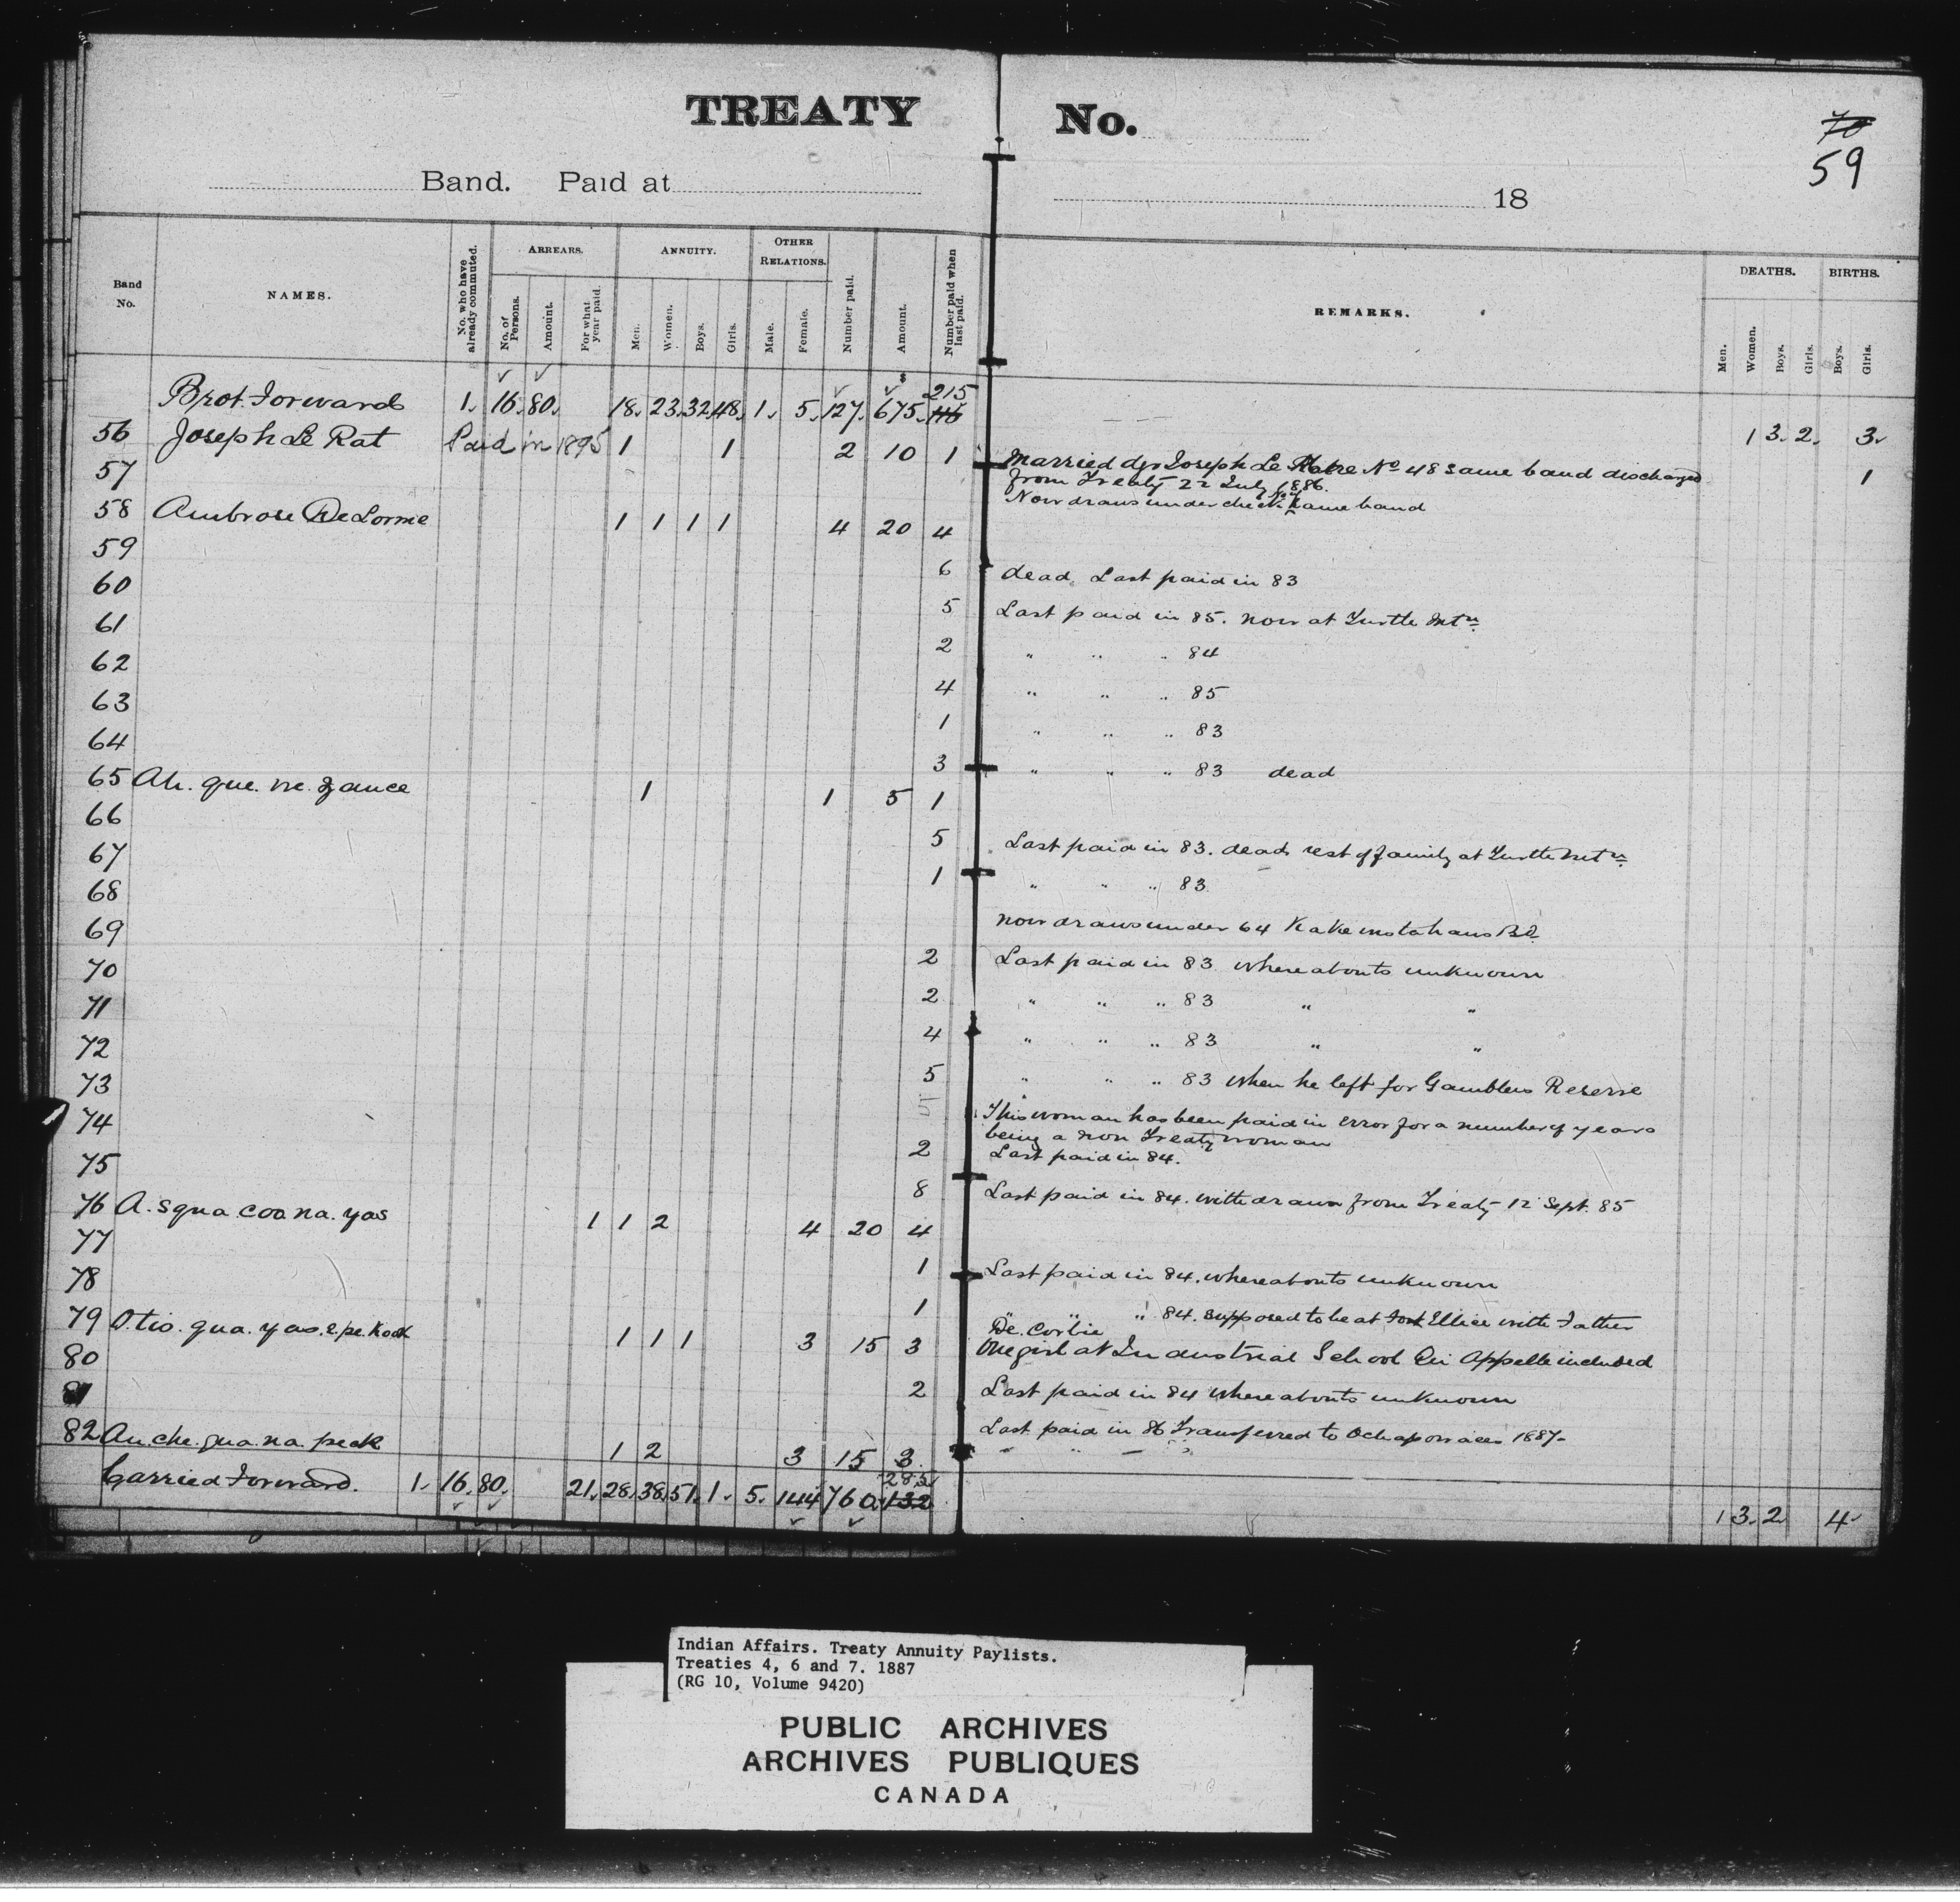 TREATY No.
70
59
Band. Paid at 18
Band No.
NAMES.
No. who have already commuted.
ARREARS.
No. of Persons.
Amount.
For what year paid.
ANNUITY.
Men.
Women.
Boys.
Girls.
OTHER RELATIONS.
Male.
Female.
Number paid.
Amount.
Number paid when last paid.
REMARKS.
DEATHS.
Men.
Women.
Boys.
Girls.
BIRTHS.
Boys.
Girls.
215
Brot. Forward 1. 16. 80. 18. 23. 32. 48. 1. 5. 127. $675. 1 3. 2. 3.
56 Joseph Le Rat Paid in 1895 1 1 2 10 1 Married dgr Joseph Le No 48 same band discharged 1
57 from Treaty 22 July 1886.
Now draws under same band
58 Ambrose DeLorme 1 1 1 1 4 20 4
59 6 dead. Last paid in 83
60 5 Last paid in 85. now at Turtle Mtn
61 2 " " " 84
62 4 " " " 85
63 1 " " " 83
64 3 " " " 83 dead
65 Ah. que. ne. zance 1 1 5 1
66 5 Last paid in 83. dead rest of family at Turtle Mtn
67 1 " " " 83
68 now draws under 64 Kakewistahaws Bd
69 2 Last paid in 83 whereabouts unknown
70 2 " " " 83 " "
71 4 " " " 83 " "
72 5 " " " 83 when he left for Gamblers Reserve
73 This woman has been paid in error for a number of years
being a non Treaty woman
74 2 Last paid in 84.
75 8 Last paid in 84. withdrawn from Treaty 12 Sept. 85
76 A. squa. coo na. yas 1 1 2 4 20 4
77 1 Last paid in 84. whereabouts unknown
78 1 " " " 84. supposed to be at Fort Ellice with Father
De. Corbie
79 O. tis. qua. yas. e. pe. Kook 1 1 1 3 15 3 One girl at Industrial School Qu Appelle included
80 2 Last paid in 84 whereabouts unknown
81 Last paid in 86 Transferred to Ochapowaces 1887-
82 An. che. gua. na. peak 1 2 3 15 3.
285
Carried Forward. 1. 16. 80. 21. 28. 38. 51. 1. 5. 144 760. 132 1 3. 2. 4
Indian Affairs. Treaty Annuity Paylists.
Treaties 4, 6 and 7. 1887
(RG 10, Volume 9420)
PUBLIC ARCHIVES
ARCHIVES PUBLIQUES
CANADA